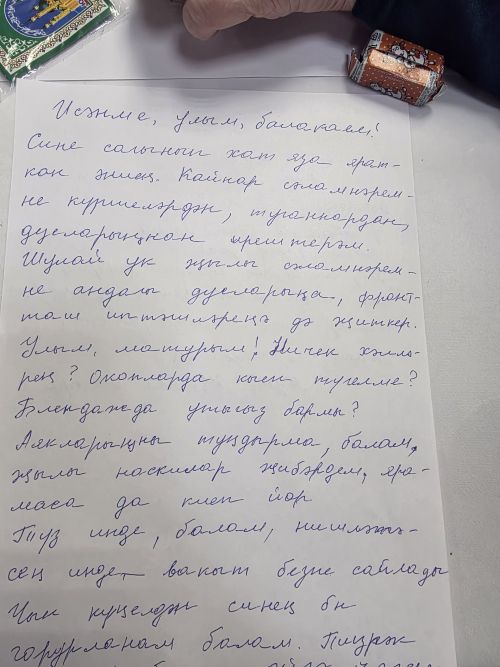 Исәнме, улым, балакаем!
Сине сагынып хат яза ярат-
кан әниең. Кайнар сәламнәрем-
не күршеләрдән, туганнардан,
дусларыңнан ирештерәм.
Шулай ук җылы сәламнәрем-
не андагы дусларыңа, фронт-
таш иптәшләреңә дә җиткер.
Улым, матурым! Ничек хәллә-
рең? Окопларда кыен түгелме?
Блендажда утыгыз бармы?
Аякларыңны туңдырма, балам,
җылы наскилар җибәрдем, яра-
маса да киеп йөр
Түз инде, балам, нишләтә-
сең инде, вакыт безне сайлады
Чын күңелдән синең бн
горурланам балам.